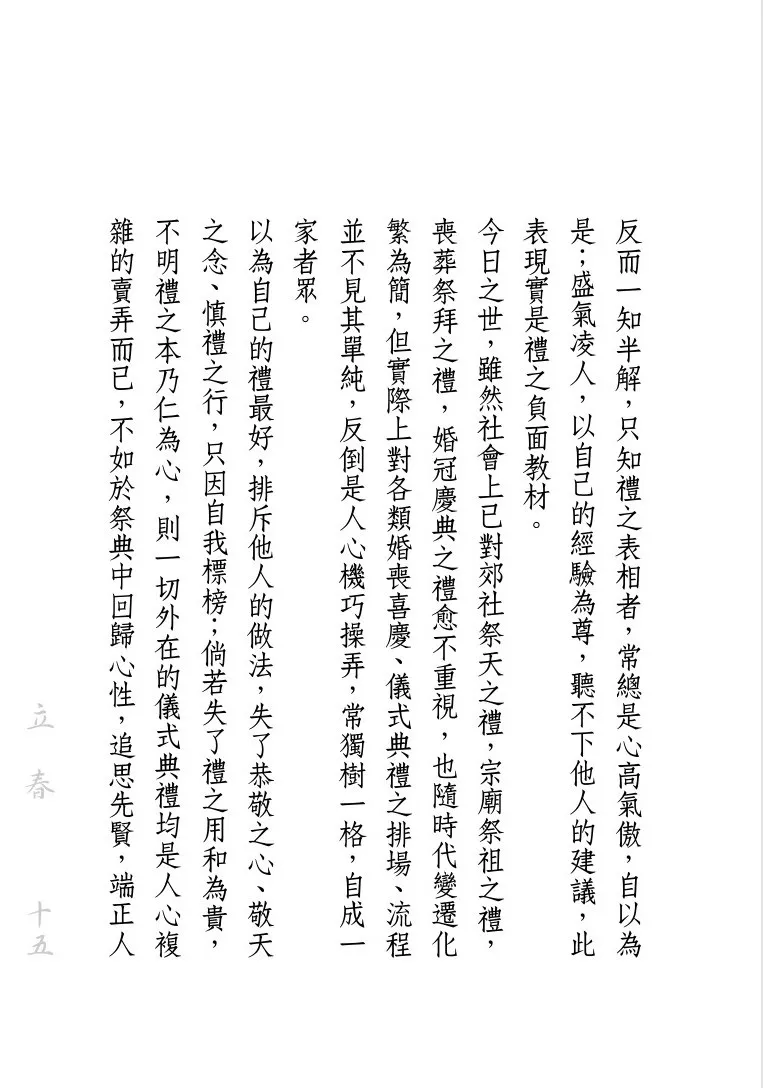 反而一知半解，只知禮之表相者，常總是心高氣傲，自以為
是；盛氣凌人，以自己的經驗為尊，聽不下他人的建議，此
表現實是禮之負面教材。
今日之世，雖然社會上已對郊社祭天之禮，宗廟祭祖之禮，
喪葬祭拜之禮，婚冠慶典之禮愈不重視，也隨時代變遷化
繁為簡，但實際上對各類婚喪喜慶、儀式典禮之排場、流程
並不見其單純，反倒是人心機巧操弄，常獨樹一格，自成一
家者眾。
以為自己的禮最好，排斥他人的做法，失了恭敬之心、敬天
之念、慎禮之行，只因自我標榜；倘若失了禮之用和為貴，
不明禮之本乃仁為心，則一切外在的儀式典禮均是人心複
雜的賣弄而已，不如於祭典中回歸心性，追思先賢，端正人
立春 十五